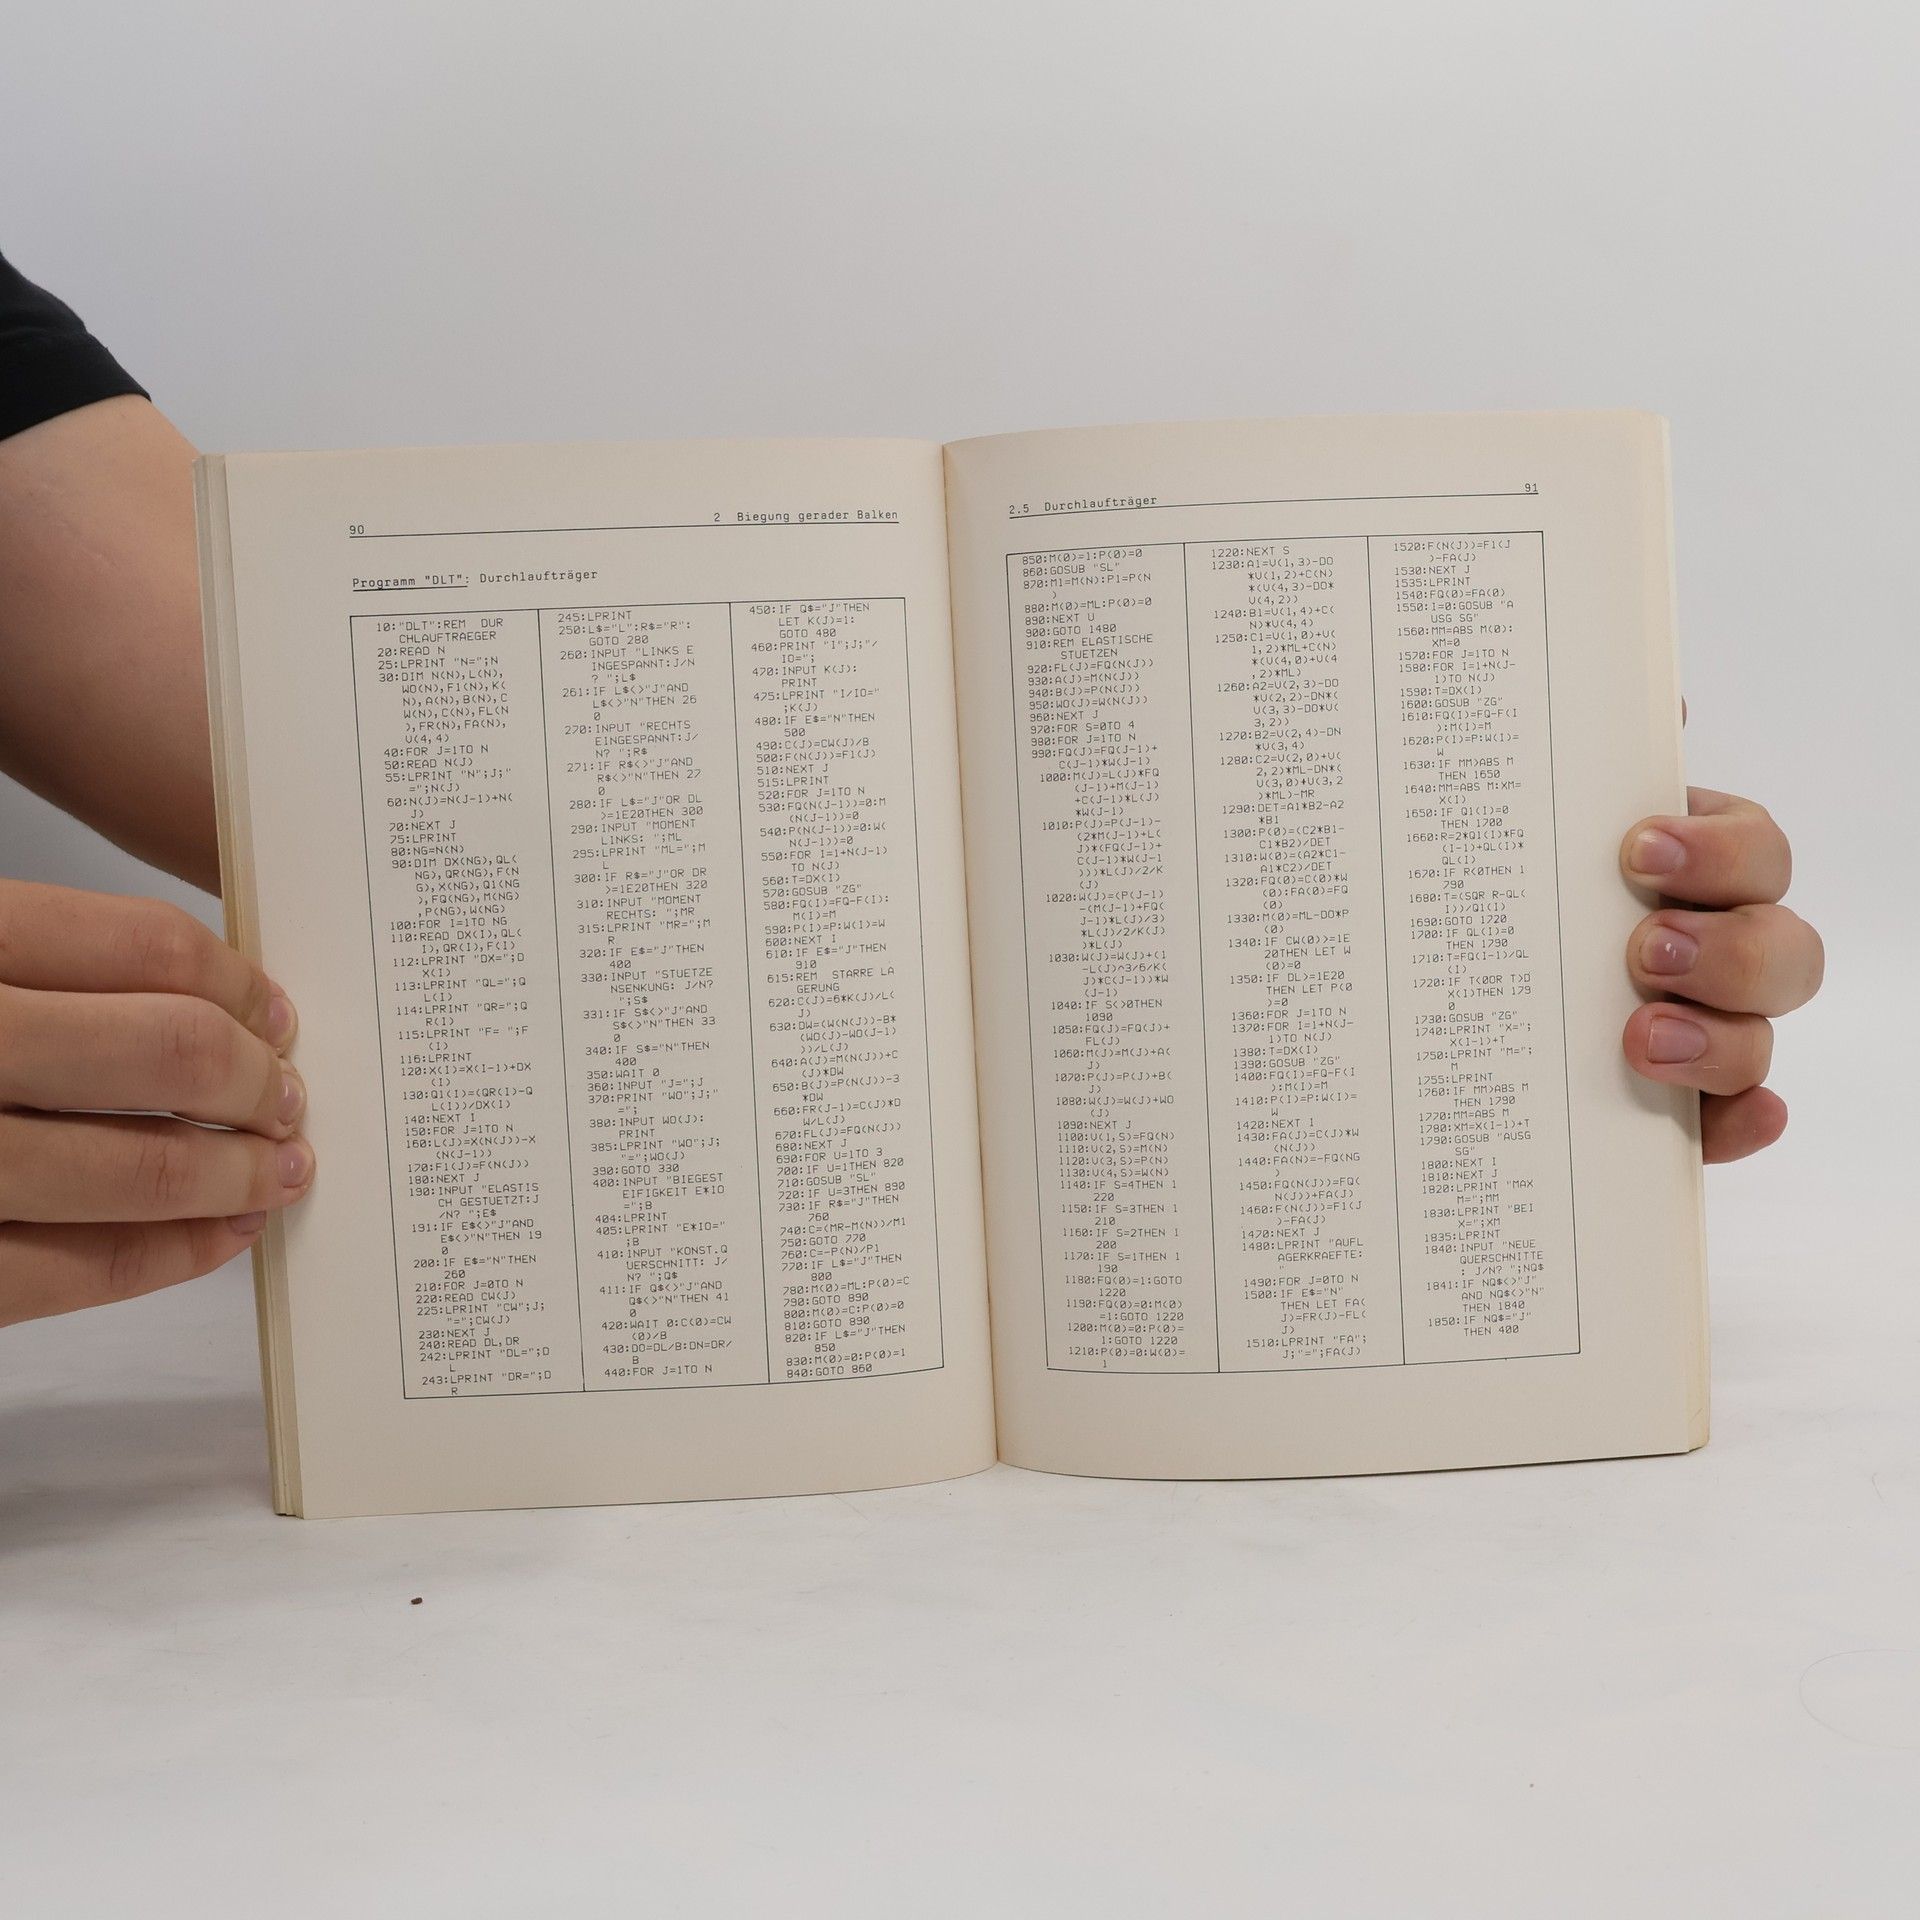 90
2 Biegung gerader Balken
Programm "DLT": Durchlaufträger
10:"DLT":REM DUR
CHLAUFTRAEGER
20:READ N
25:LPRINT "N=";N
30:DIM N(N),L(N),
WO(N),F1(N),K(
N),A(N),B(N),C
W(N),C(N),FL(N
),FR(N),FA(N),
V(4,4)
40:FOR J=1TO N
50:READ N(J)
55:LPRINT "N";J;"
=";N(J)
60:N(J)=N(J-1)+N(
J)
70:NEXT J
75:LPRINT
80:NG=N(N)
90:DIM DX(NG),QL(
NG),QR(NG),F(N
G),X(NG),Q1(NG
),FQ(NG),M(NG)
,P(NG),W(NG)
100:FOR I=1TO NG
110:READ DX(I),QL(
I),QR(I),F(I)
112:LPRINT "DX=";D
X(I)
113:LPRINT "QL=";Q
L(I)
114:LPRINT "QR=";Q
R(I)
115:LPRINT "F= ";F
(I)
116:LPRINT
120:X(I)=X(I-1)+DX
(I)
130:Q1(I)=(QR(I)-Q
L(I))/DX(I)
140:NEXT I
150:FOR J=1TO N
160:L(J)=X(N(J))-X
(N(J-1))
170:F1(J)=F(N(J))
180:NEXT J
190:INPUT "ELASTIS
CH GESTUETZT:J
/N? ";E$
191:IF E$<>"J"AND
E$<>"N"THEN 19
0
200:IF E$="N"THEN
260
210:FOR J=0TO N
220:READ CW(J)
225:LPRINT "CW";J;
"=";CW(J)
230:NEXT J
240:READ DL,DR
242:LPRINT "DL=";D
L
243:LPRINT "DR=";D
R
245:LPRINT
250:L$="L":R$="R":
GOTO 280
260:INPUT "LINKS E
INGESPANNT:J/N
? ";L$
261:IF L$<>"J"AND
L$<>"N"THEN 26
0
270:INPUT "RECHTS
EINGESPANNT:J/
N? ";R$
271:IF R$<>"J"AND
R$<>"N"THEN 27
0
280:IF L$="J"OR DL
>=1E20THEN 300
290:INPUT "MOMENT
LINKS: ";ML
295:LPRINT "ML=";M
L
300:IF R$="J"OR DR
>=1E20THEN 320
310:INPUT "MOMENT
RECHTS: ";MR
315:LPRINT "MR=";M
R
320:IF E$="J"THEN
400
330:INPUT "STUETZE
NSENKUNG: J/N?
";S$
331:IF S$<>"J"AND
S$<>"N"THEN 33
0
340:IF S$="N"THEN
400
350:WAIT 0
360:INPUT "J=";J
370:PRINT "WO";J;"
=";
380:INPUT WO(J):
PRINT
385:LPRINT "WO";J;
"=";WO(J)
390:GOTO 330
400:INPUT "BIEGEST
EIFIGKEIT E*IO
=";B
404:LPRINT
405:LPRINT "E*IO="
;B
410:INPUT "KONST.Q
UERSCHNITT: J/
N? ";Q$
411:IF Q$<>"J"AND
Q$<>"N"THEN 41
0
420:WAIT 0:C(0)=CW
(0)/B
430:DO=DL/B:DN=DR/
B
440:FOR J=1TO N
450:IF Q$="J"THEN
LET K(J)=1:
GOTO 480
460:PRINT "I";J;"/
IO=";
470:INPUT K(J):
PRINT
475:LPRINT "I/IO="
;K(J)
480:IF E$="N"THEN
500
490:C(J)=CW(J)/B
500:F(N(J))=F1(J)
510:NEXT J
515:LPRINT
520:FOR J=1TO N
530:FQ(N(J-1))=0:M
(N(J-1))=0
540:P(N(J-1))=0:W(
N(J-1))=0
550:FOR I=1+N(J-1)
TO N(J)
560:T=DX(I)
570:GOSUB "ZG"
580:FQ(I)=FQ-F(I):
M(I)=M
590:P(I)=P:W(I)=W
600:NEXT I
610:IF E$="J"THEN
910
615:REM STARRE LA
GERUNG
620:C(J)=6*K(J)/L(
J)
630:DW=(W(N(J))-B*
(WO(J)-WO(J-1)
))/L(J)
640:A(J)=M(N(J))+C
(J)*DW
650:B(J)=P(N(J))-3
*DW
660:FR(J-1)=C(J)*D
W/L(J)
670:FL(J)=FQ(N(J))
680:NEXT J
690:FOR U=1TO 3
700:IF U=1THEN 820
710:GOSUB "SL"
720:IF U=3THEN 890
730:IF R$="J"THEN
760
740:C=(MR-M(N))/M1
750:GOTO 770
760:C=-P(N)/P1
770:IF L$="J"THEN
800
780:M(0)=ML:P(0)=C
790:GOTO 890
800:M(0)=C:P(0)=0
810:GOTO 890
820:IF L$="J"THEN
850
830:M(0)=0:P(0)=1
840:GOTO 860
2.5 Durchlaufträger
91
850:M(0)=1:P(0)=0
860:GOSUB "SL"
870:M1=M(N):P1=P(N
)
880:M(0)=ML:P(0)=0
890:NEXT U
900:GOTO 1480
910:REM ELASTISCHE
STUETZEN
920:FL(J)=FQ(N(J))
930:A(J)=M(N(J))
940:B(J)=P(N(J))
950:WO(J)=W(N(J))
960:NEXT J
970:FOR S=0TO 4
980:FOR J=1TO N
990:FQ(J)=FQ(J-1)+
C(J-1)*W(J-1)
1000:M(J)=L(J)*FQ
(J-1)+M(J-1)
+C(J-1)*L(J)
*W(J-1)
1010:P(J)=P(J-1)-
(2*M(J-1)+L(
J)*(FQ(J-1)+
C(J-1)*W(J-1
)))*L(J)/2/K
(J)
1020:W(J)=(P(J-1)
-(M(J-1)+FQ(
J-1)*L(J)/3)
*L(J)/2/K(J)
)*L(J)
1030:W(J)=W(J)+(1
-L(J)^3/6/K(
J)*C(J-1))*W
(J-1)
1040:IF S<>0THEN
1090
1050:FQ(J)=FQ(J)+
FL(J)
1060:M(J)=M(J)+A(
J)
1070:P(J)=P(J)+B(
J)
1080:W(J)=W(J)+WO
(J)
1090:NEXT J
1100:V(1,S)=FQ(N)
1110:V(2,S)=M(N)
1120:V(3,S)=P(N)
1130:V(4,S)=W(N)
1140:IF S=4THEN 1
220
1150:IF S=3THEN 1
210
1160:IF S=2THEN 1
200
1170:IF S=1THEN 1
190
1180:FQ(0)=1:GOTO
1220
1190:FQ(0)=0:M(0)
=1:GOTO 1220
1200:M(0)=0:P(0)=
1:GOTO 1220
1210:P(0)=0:W(0)=
1
1220:NEXT S
1230:A1=V(1,3)-DO
*V(1,2)+C(N)
*(V(4,3)-DO*
V(4,2))
1240:B1=V(1,4)+C(
N)*V(4,4)
1250:C1=V(1,0)+V(
1,2)*ML+C(N)
*(V(4,0)+V(4
,2)*ML)
1260:A2=V(2,3)-DO
*V(2,2)-DN*(
V(3,3)-DO*V(
3,2))
1270:B2=V(2,4)-DN
*V(3,4)
1280:C2=V(2,0)+V(
2,2)*ML-DN*(
V(3,0)+V(3,2
)*ML)-MR
1290:DET=A1*B2-A2
*B1
1300:P(0)=(C2*B1-
C1*B2)/DET
1310:W(0)=(A2*C1-
A1*C2)/DET
1320:FQ(0)=C(0)*W
(0):FA(0)=FQ
(0)
1330:M(0)=ML-DO*P
(0)
1340:IF CW(0)>=1E
20THEN LET W
(0)=0
1350:IF DL>=1E20
THEN LET P(0
)=0
1360:FOR J=1TO N
1370:FOR I=1+N(J-
1)TO N(J)
1380:T=DX(I)
1390:GOSUB "ZG"
1400:FQ(I)=FQ-F(I
):M(I)=M
1410:P(I)=P:W(I)=
W
1420:NEXT I
1430:FA(J)=C(J)*W
(N(J))
1440:FA(N)=-FQ(NG
)
1450:FQ(N(J))=FQ(
N(J))+FA(J)
1460:F(N(J))=F1(J
)-FA(J)
1470:NEXT J
1480:LPRINT "AUFL
AGERKRAEFTE:
"
1490:FOR J=0TO N
1500:IF E$="N"
THEN LET FA(
J)=FR(J)-FL(
J)
1510:LPRINT "FA";
J;"=";FA(J)
1520:F(N(J))=F1(J
)-FA(J)
1530:NEXT J
1535:LPRINT
1540:FQ(0)=FA(0)
1550:I=0:GOSUB "A
USG SG"
1560:MM=ABS M(0):
XM=0
1570:FOR J=1TO N
1580:FOR I=1+N(J-
1)TO N(J)
1590:T=DX(I)
1600:GOSUB "ZG"
1610:FQ(I)=FQ-F(I
):M(I)=M
1620:P(I)=P:W(I)=
W
1630:IF MM>ABS M
THEN 1650
1640:MM=ABS M:XM=
X(I)
1650:IF Q1(I)=0
THEN 1700
1660:R=2*Q1(I)*FQ
(I-1)+QL(I)*
QL(I)
1670:IF R<0THEN 1
790
1680:T=(SQR R-QL(
I))/Q1(I)
1690:GOTO 1720
1700:IF QL(I)=0
THEN 1790
1710:T=FQ(I-1)/QL
(I)
1720:IF T<0OR T>D
X(I)THEN 179
0
1730:GOSUB "ZG"
1740:LPRINT "X=";
X(I-1)+T
1750:LPRINT "M=";
M
1755:LPRINT
1760:IF MM>ABS M
THEN 1790
1770:MM=ABS M
1780:XM=X(I-1)+T
1790:GOSUB "AUSG
SG"
1800:NEXT I
1810:NEXT J
1820:LPRINT "MAX
M=";MM
1830:LPRINT "BEI
X=";XM
1835:LPRINT
1840:INPUT "NEUE
QUERSCHNITTE
: J/N? ";NQ$
1841:IF NQ$<>"J"
AND NQ$<>"N"
THEN 1840
1850:IF NQ$="J"
THEN 400